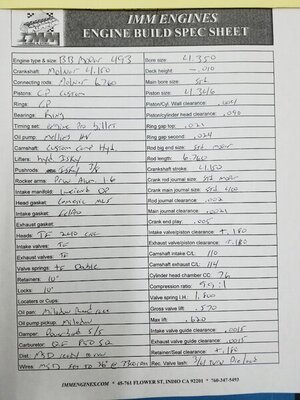 IMM ENGINES
ENGINE BUILD SPEC SHEET
IMM
Engine type & size: BB Mopar 493
Bore size: 4.350
Crankshaft: Molnar 4.150
Deck height -.010
Connecting rods: Molnar 6.760
Main bore size: std
Pistons: CP Custom
Piston size: 4.346
Rings: CP
Piston/Cyl. Wall clearance: .004
Bearings: King
Piston/cylinder head clearance: .040
Timing set: Engine Pro billet
Ring gap top: .021
Oil pump: Melling HV
Ring gap second: .024
Camshaft: Custom Hyd.
Rod big end size: std
Lifters: hyd Isky
Rod length: 6.760
Pushrods: 3/8
Crankshaft stroke: 4.150
Rocker arms: 1.6
Crank rod journal size: std
Intake manifold:
Crank main journal size: std
Head gasket: Cometic MLS
Rod journal clearance: .002
Intake gasket: FelPro
Main journal clearance: .0021
Exhaust gasket:
Crank end play: .005
Heads: TF 240
Intake valve/piston clearance: +.180
Intake valves: TF
Exhaust valve/piston clearance: +.180
Exhaust valves: TF
Camshaft intake C/L: 110
Valve springs: TF Double
Camshaft exhaust C/L: 114
Retainers: 10°
Cylinder head chamber CC: 76
Locks: 10°
Compression ratio:
Locators or Cups:
Valve spring I.H.: 1.800
Oil pan: Milodon
Gross valve lift: .570
Oil pump pickup: Milodon
Max lift: .620
Damper:
Intake valve guide clearance: .0015
Carburetor: QF
Exhaust valve guide clearance: .0015
Dist: MSD ready to run
Retainer/Seal clearance: +.150
Wires: MSD
Rec. Valve lash:
IMMENGINES.COM * 45-761 FLOWER ST, INDIO CA 92201 * 760-347-5493